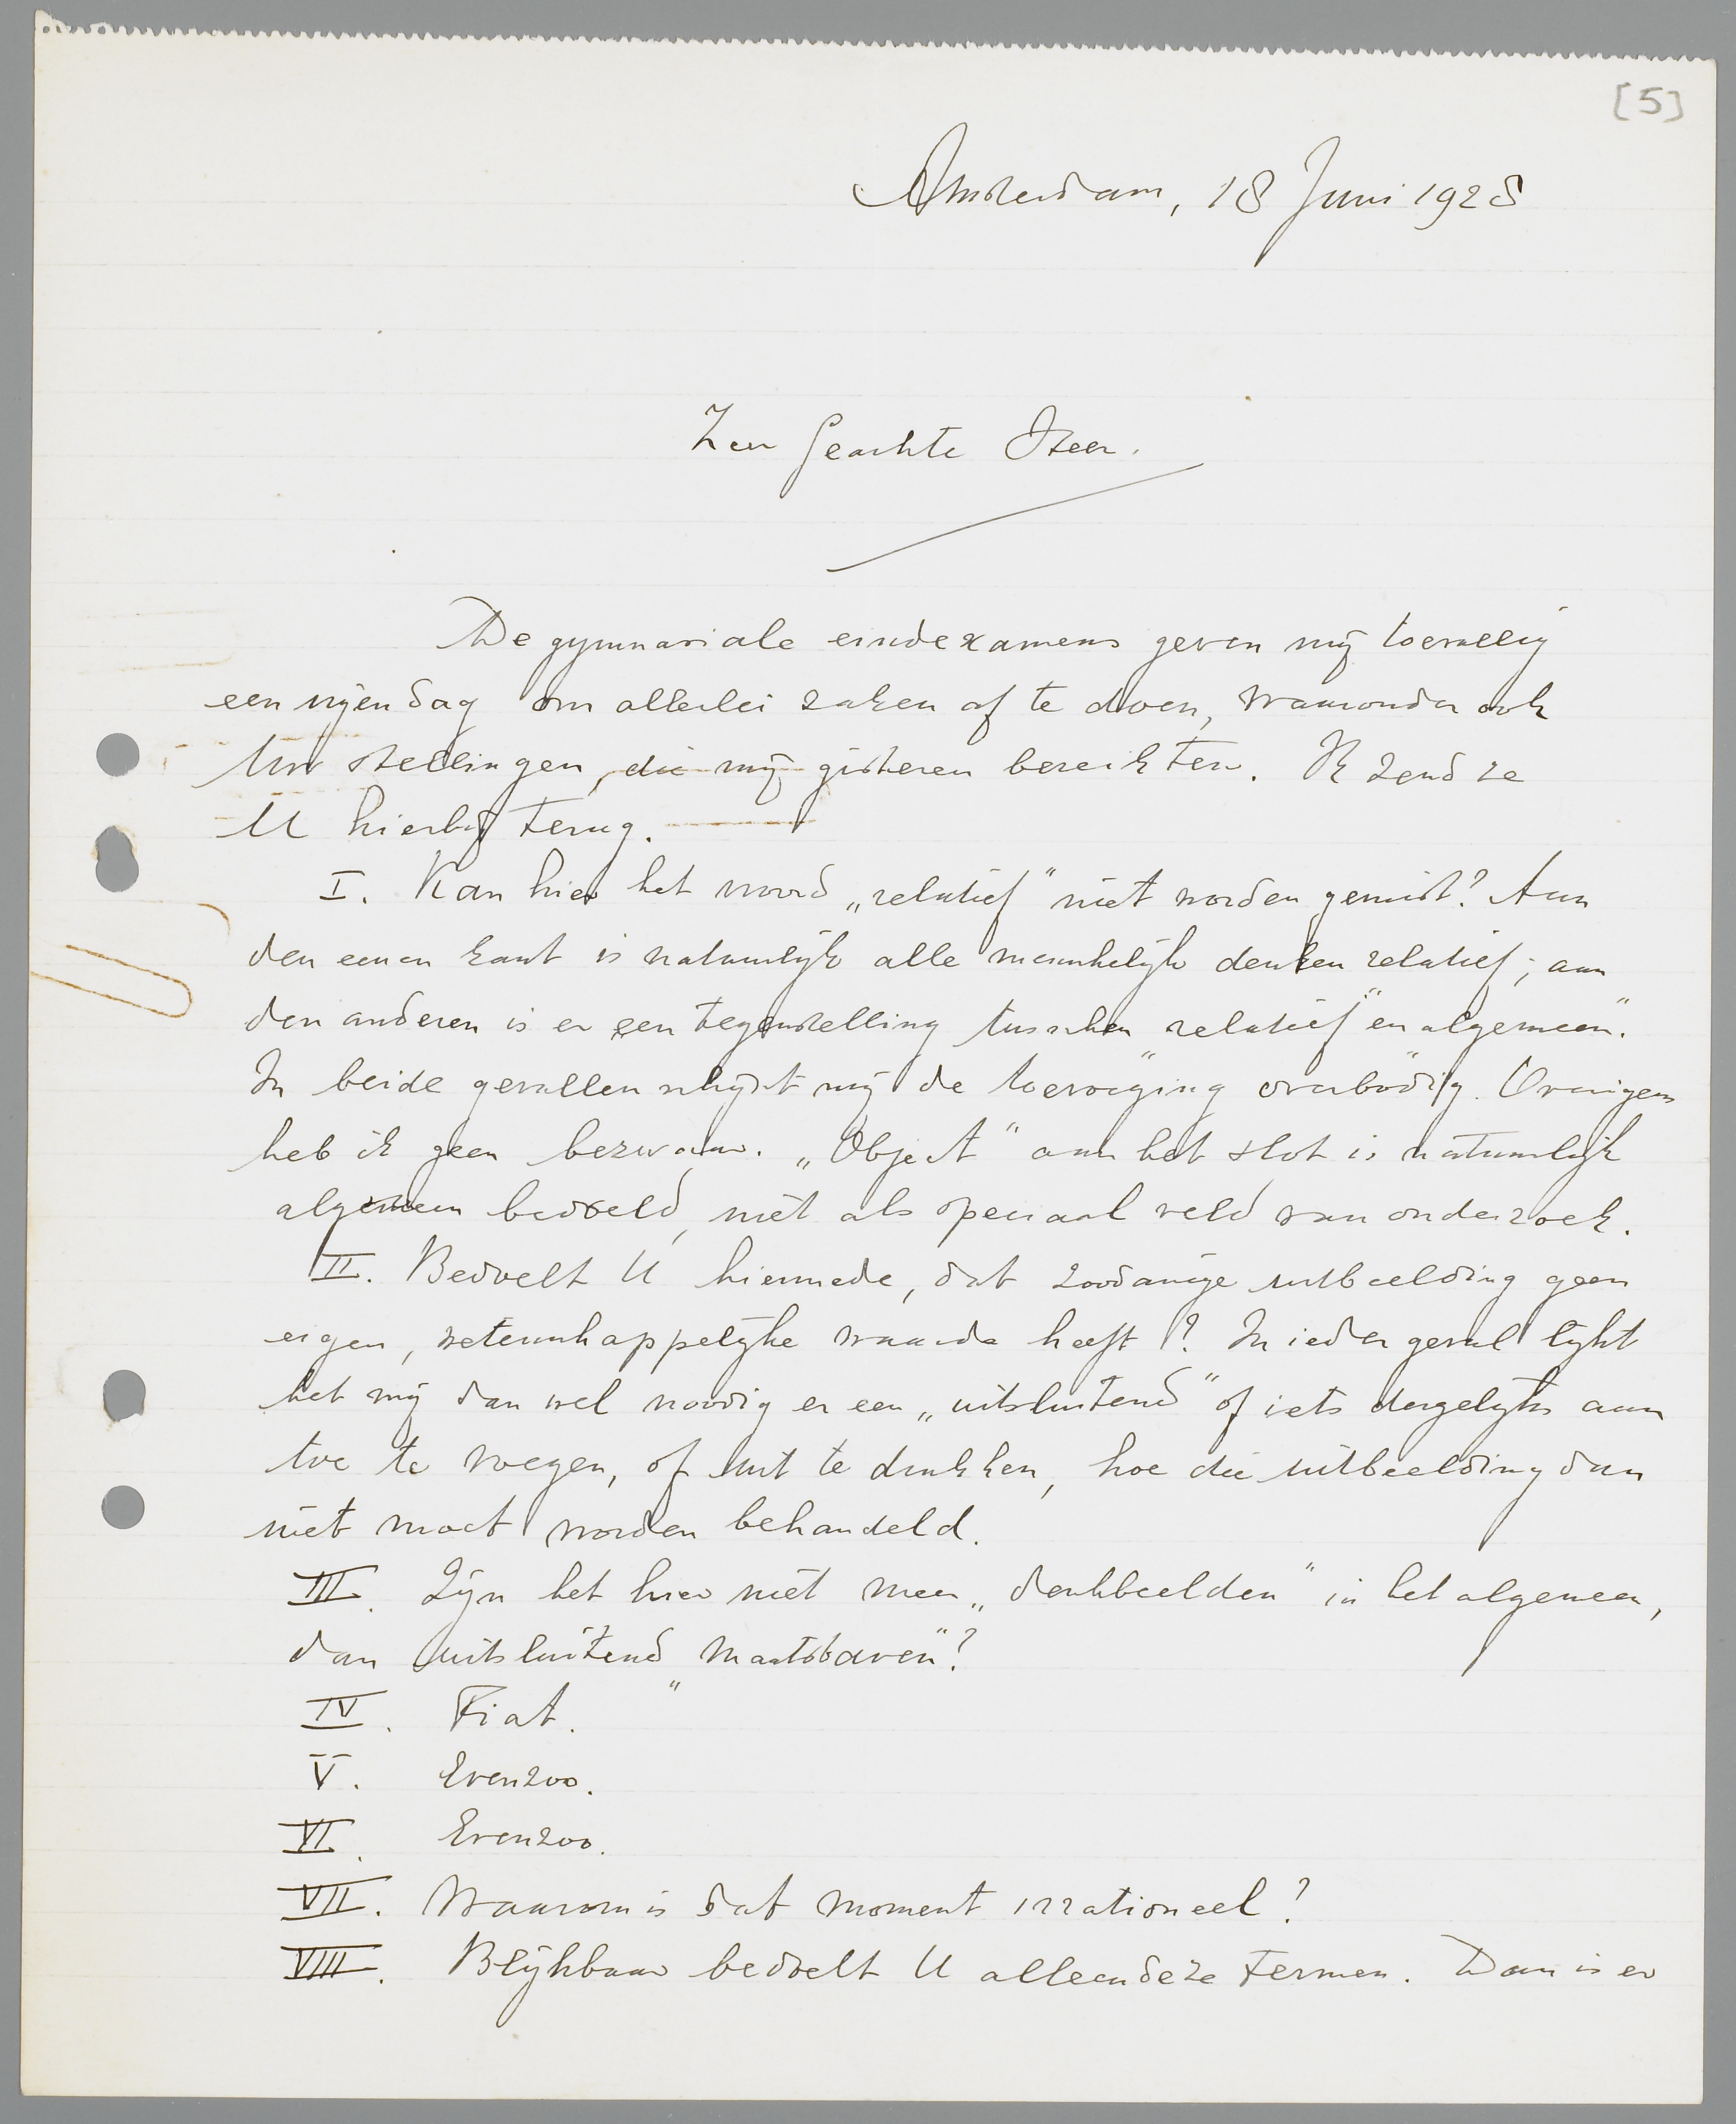 [5]
Amsterdam, 18 Juni 1928
Zeer Geachte Heer.
De gymnasiale eindexamens geven mij toevallig
een vrijen dag om allerlei zaken af te doen, waaronder ook
Uw stellingen, die mij gisteren bereikten. Ik zend ze
U hierbij terug.
I. Kan hier het woord „relatief" niet worden gemist? Aan
den eenen kant is natuurlijk alle menschelijk denken relatief; aan
den anderen is er een tegenstelling tusschen „relatief" en „algemeen".
In beide gevallen schijnt mij de toevoeging overbodig. Overigens
heb ik geen bezwaar. „Object" aan het slot is natuurlijk
algemeen bedoeld, niet als speciaal veld van onderzoek.
II. Bedoelt U hiermede, dat zoodanige uitbeelding geen
eigen, wetenschappelijke waarde heeft? In ieder geval lijkt
het mij dan wel noodig er een „uitsluitend" of iets dergelijks aan
toe te voegen, of uit te drukken, hoe die uitbeelding dan
niet moet worden behandeld.
III. Zijn het hier niet meer „denkbeelden" in het algemeen,
dan uitsluitend „maatstaven"?
IV. Fiat.
V. Evenzoo.
VI. Evenzoo.
VII. Waarom is dat moment irrationeel?
VIII. Blijkbaar bedoelt U alleen deze termen. Dan is er